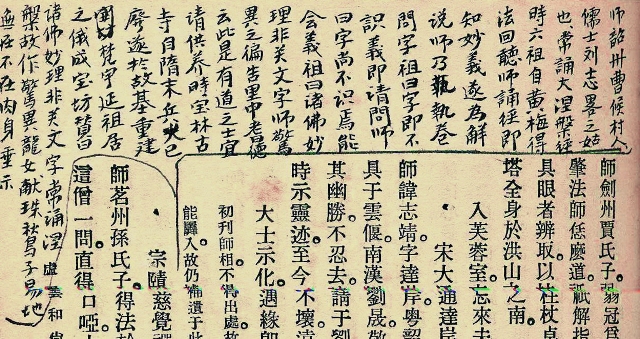 師韶州曹候村人
儒士刘志畧之姑
也常誦大涅槃经
時六祖自黄梅得
法回聽师誦经即
知妙義遂為解
说师乃執卷
问字祖曰字即不
识義即请問师
曰字尚不识焉能
会義祖曰诸佛妙
理非关文字师驚
異之徧告里中耆德
云此是有道之士宜
请供养時宝林古
寺自隋末兵火已
廢遂於故基重建
梵宇延祖居
之俄成宝坊赞曰
诸佛妙理非关文字常诵涅
槃故作驚異龍女献珠秋子易地
無在不在肉身垂示
師劍州賈氏子。弱冠爲
肇法師恁麼道。祇解指
具眼者辨取。以拄杖卓
塔全身於洪山之南。
入芙蓉室。忘來去
宋大通達岸
師諱志靖字達岸。粵韶
具于雲偃。南漢劉晟敬
其幽勝。不忍去。請于劉
時示靈迹。至今不壞。遠
大士示化。遇緣即
初刊師相不得出處故
能羼入故仍補遺于此
宗賾慈覺禪
師茗州孫氏子。得法於
這僧一問直得口啞
虛雲和尚